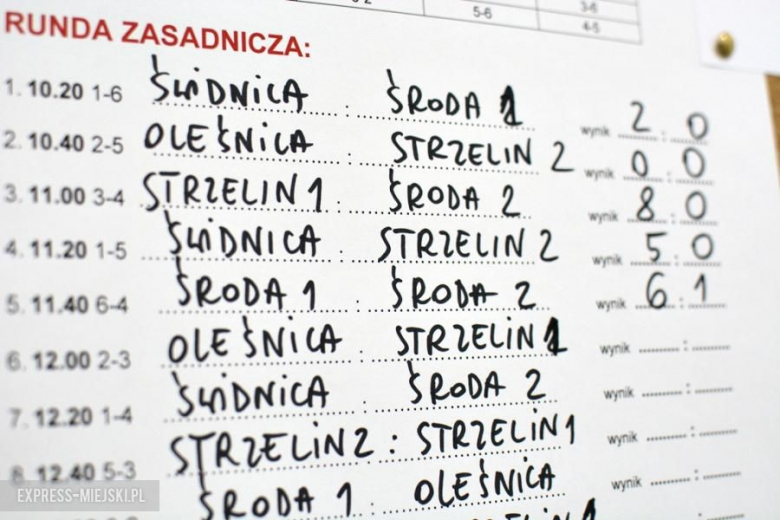 5-6
3-6
4-5
RUNDA ZASADNICZA:
1. 10.20 1-6 ŚWIDNICA : ŚRODA 1 wynik 2 : 0
2. 10.40 2-5 OLEŚNICA : STRZELIN 2 wynik 0 : 0
3. 11.00 3-4 STRZELIN 1 : ŚRODA 2 wynik 8 : 0
4. 11.20 1-5 ŚWIDNICA : STRZELIN 2 wynik 5 : 0
5. 11.40 6-4 ŚRODA 1 : ŚRODA 2 wynik 6 : 1
6. 12.00 2-3 OLEŚNICA : STRZELIN 1 wynik :
7. 12.20 1-4 ŚWIDNICA : ŚRODA 2 wynik :
8. 12.40 5-3 STRZELIN 2 : STRZELIN 1 wynik :
ŚRODA 1 : OLEŚNICA wynik :
EXPRESS-MIEJSKI.PL